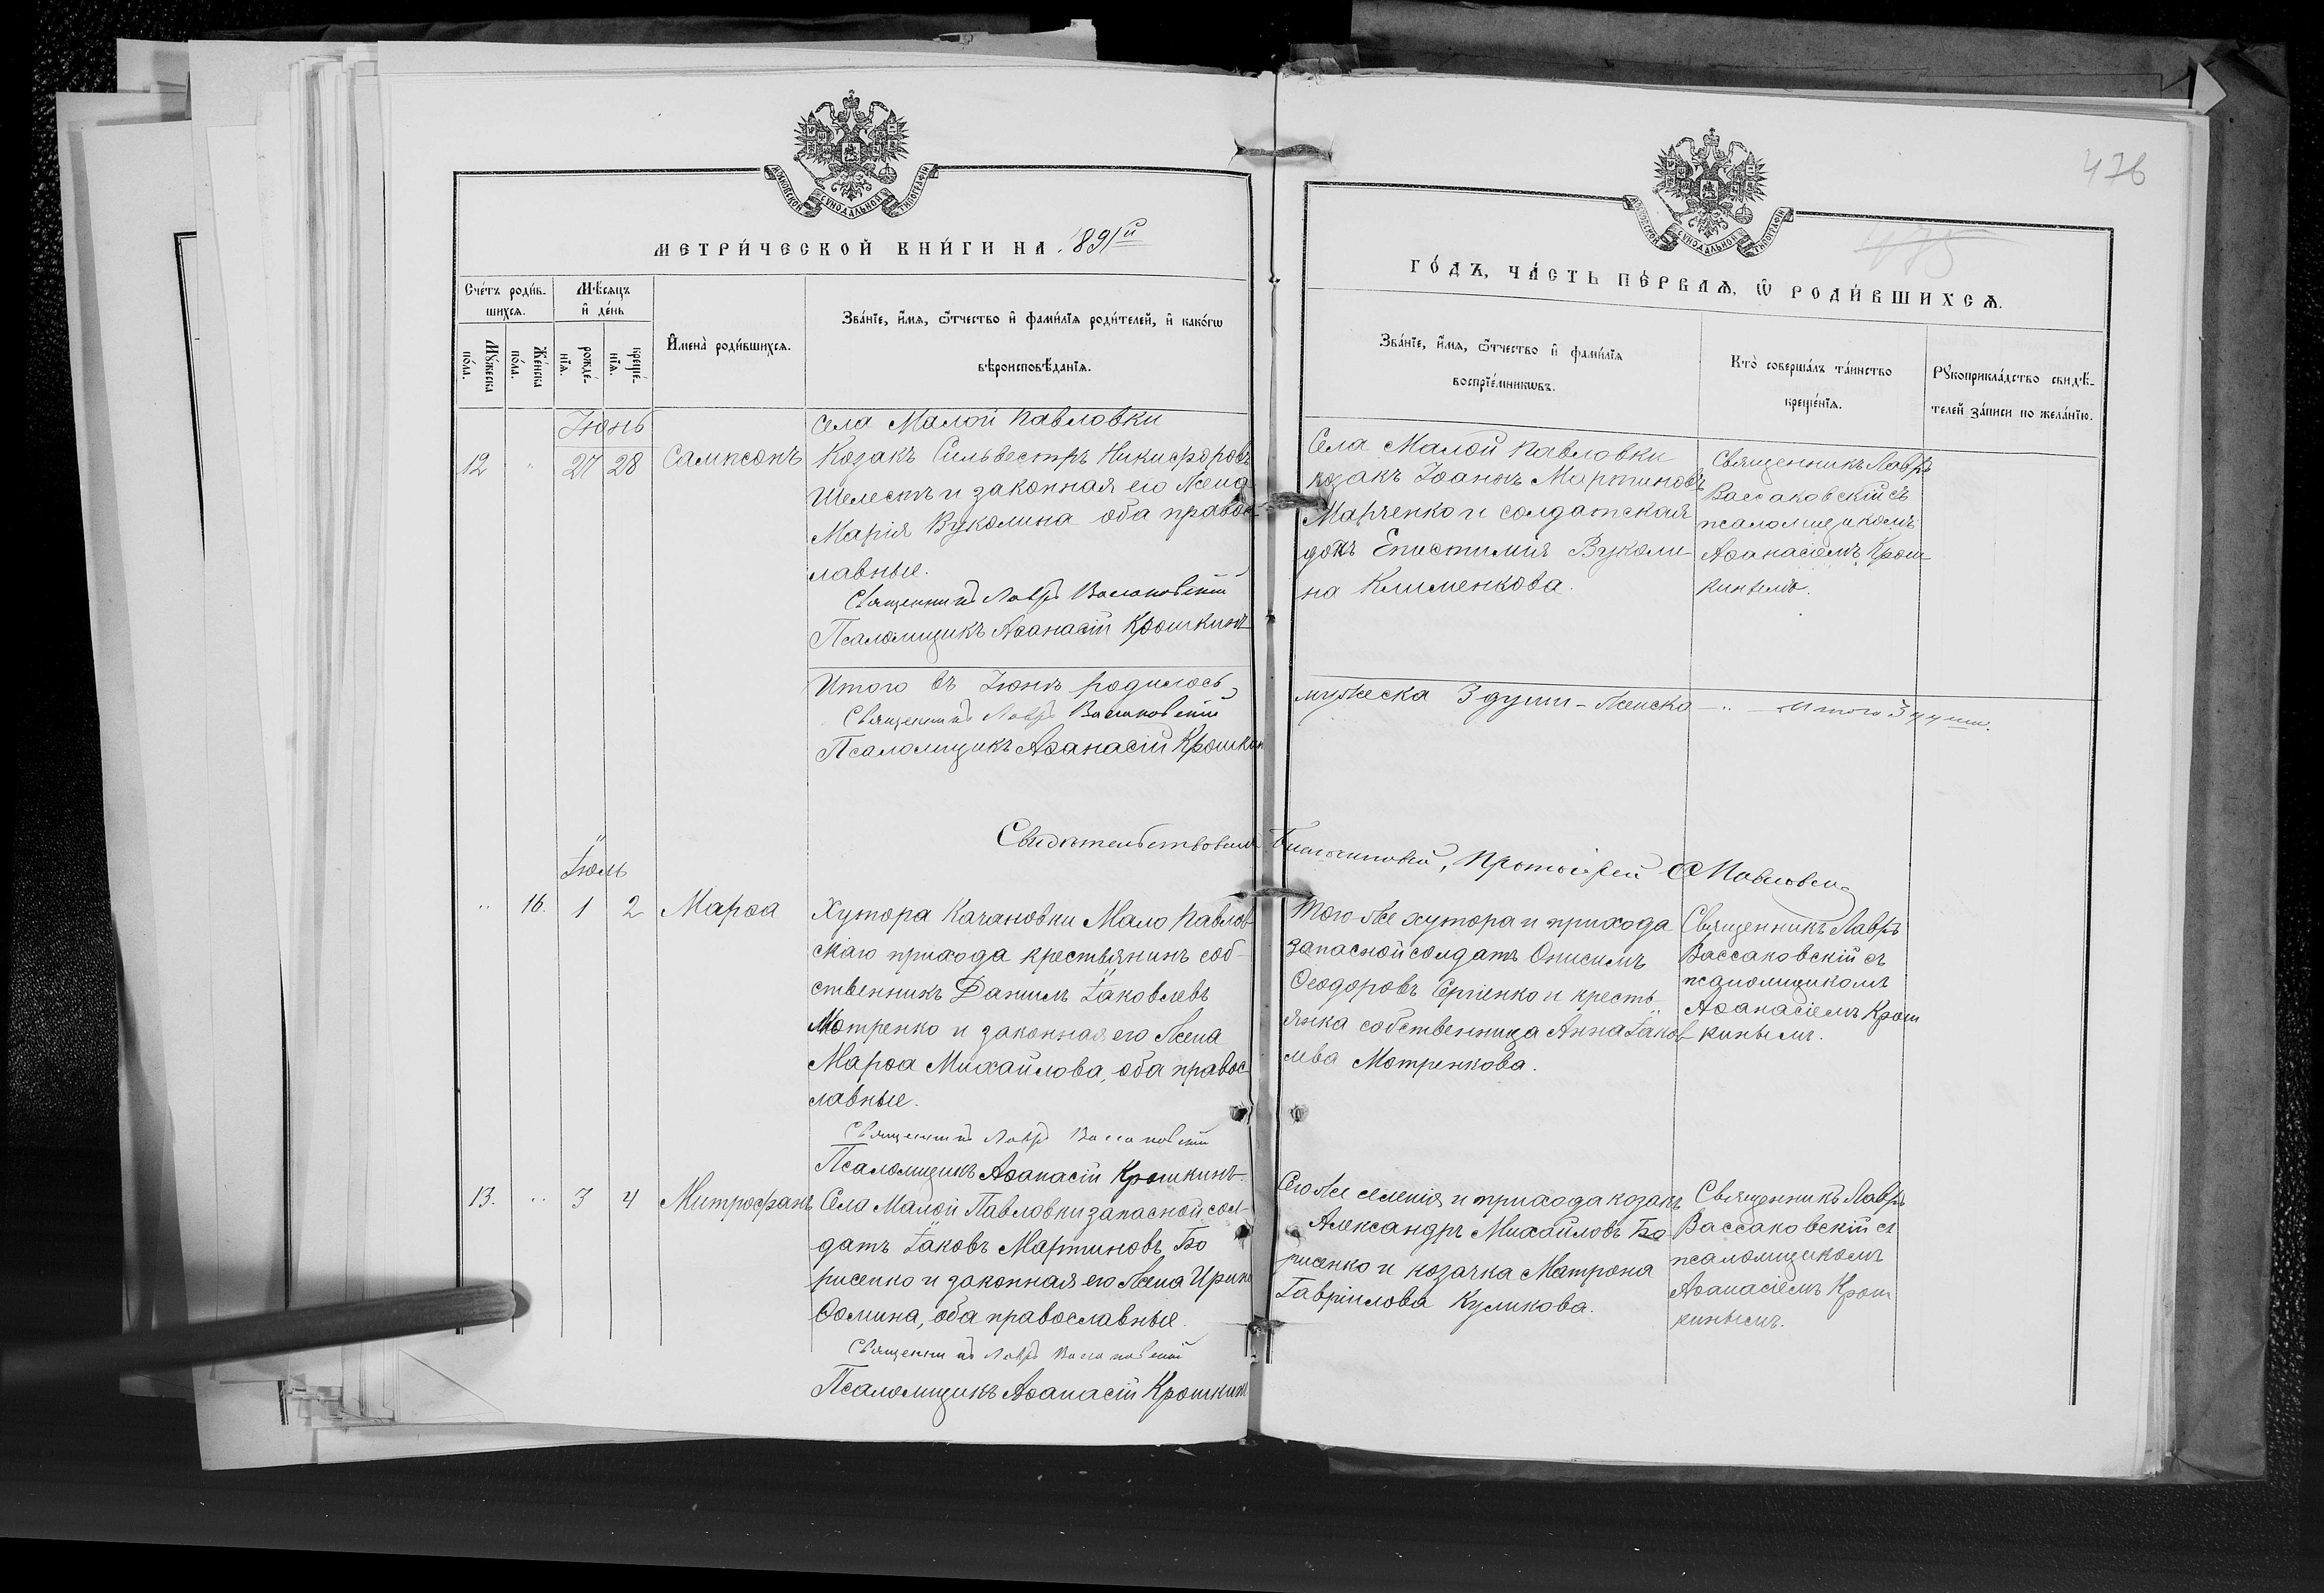 МОСКОВСКОЙ СѴНОДАЛЬНОЙ ТИПОГРАФІИ
МЕТРИ́ЧЕСКОЙ КНИ́ГИ НА 1891й
Сче́тъ роди́вшихся.
Мѣ́сяцъ и де́нь
Мꙋ́жеска по́ла.
Же́нска по́ла.
рожде́нїя.
креще́нїя.
И҆мена̀ роди́вшихся.
Зва́нїе, и҆́мя, ѻ҆́тчество и҆ фами́лїя роди́телей, и҆ како́гѡ
вѣроисповѣ́данїя.
Іюнь
12 " 27 28 Сампсонъ
Села Малой Павловки
Козакъ Сильвестръ Никифоровъ
Шелестъ и законная его жена
Марія Вуколина оба правос-
лавные.
Священникъ Лавръ Вассаковскій
Псаломщикъ Аѳанасій Крошкинъ
Итого въ Іюнѣ родилось
Священникъ Лавръ Вассаковскій
Псаломщикъ Аѳанасій Крошкин
Іюль
" 16. 1 2 Марѳа
Хутора Качановки Мало Павлов-
скаго прихода крестьянинъ соб-
ственникъ Даніилъ Іаковлевъ
Мотренко и законная его жена
Марѳа Михайлова, оба правос
лавные.
Священникъ Лавръ Вассаковскій
Псаломщикъ Аѳанасій Крошкинъ
13. " 3 4 Митрофанъ
Села Малой Павловки запасной сол-
датъ Іаковъ Мартиновъ Бо
рисенко и законная его жена Ирина
Ѳомина, оба православные.
Священникъ Лавръ Вассаковскій
Псаломщикъ Аѳанасій Крошкинъ
476
475
МОСКОВСКОЙ СѴНОДАЛЬНОЙ ТИПОГРАФІИ
ГО́ДЪ, ЧА́СТЬ ПЕ́РВАЯ, Ѡ РОДИ́ВШИХСЯ.
Зва́нїе, и҆́мя, ѻ҆́тчество и҆ фами́лїя
воспрїе́мникѡвъ.
Кто̀ соверша́лъ та́инство
креще́нїя.
Рꙋкоприкла́дство свидѣ́-
телей за́писи по жела́нїю.
Села Малой Павловки
козакъ Іоаннъ Мартиновъ
Марченко и солдатская
дочь Епистимия Вуколи-
на Клименкова.
Священникъ Лавръ
Вассаковскій съ
псаломщикомъ
Аѳанасіемъ Крош-
кинымъ.
мужеска 3 души - женска - " - Итого 3 души.
Свидѣтельствовалъ Благочинный, Протоіерей
Того же хутора и прихода
запасной солдатъ Онисимъ
Ѳеодоровъ Сергіенко и кресть-
янка собственница Анна Іаков-
лева Мотренкова.
Священникъ Лавръ
Вассаковскій съ
псаломщикомъ
Аѳанасіемъ Крош
кинымъ.
Сего же селенія и прихода козакъ
Александръ Михайловъ Бо-
рисенко и козачка Матрона
Гавріилова Куликова.
Священникъ Лавръ
Вассаковскій съ
псаломщикомъ
Аѳанасіемъ Крош
кинымъ.